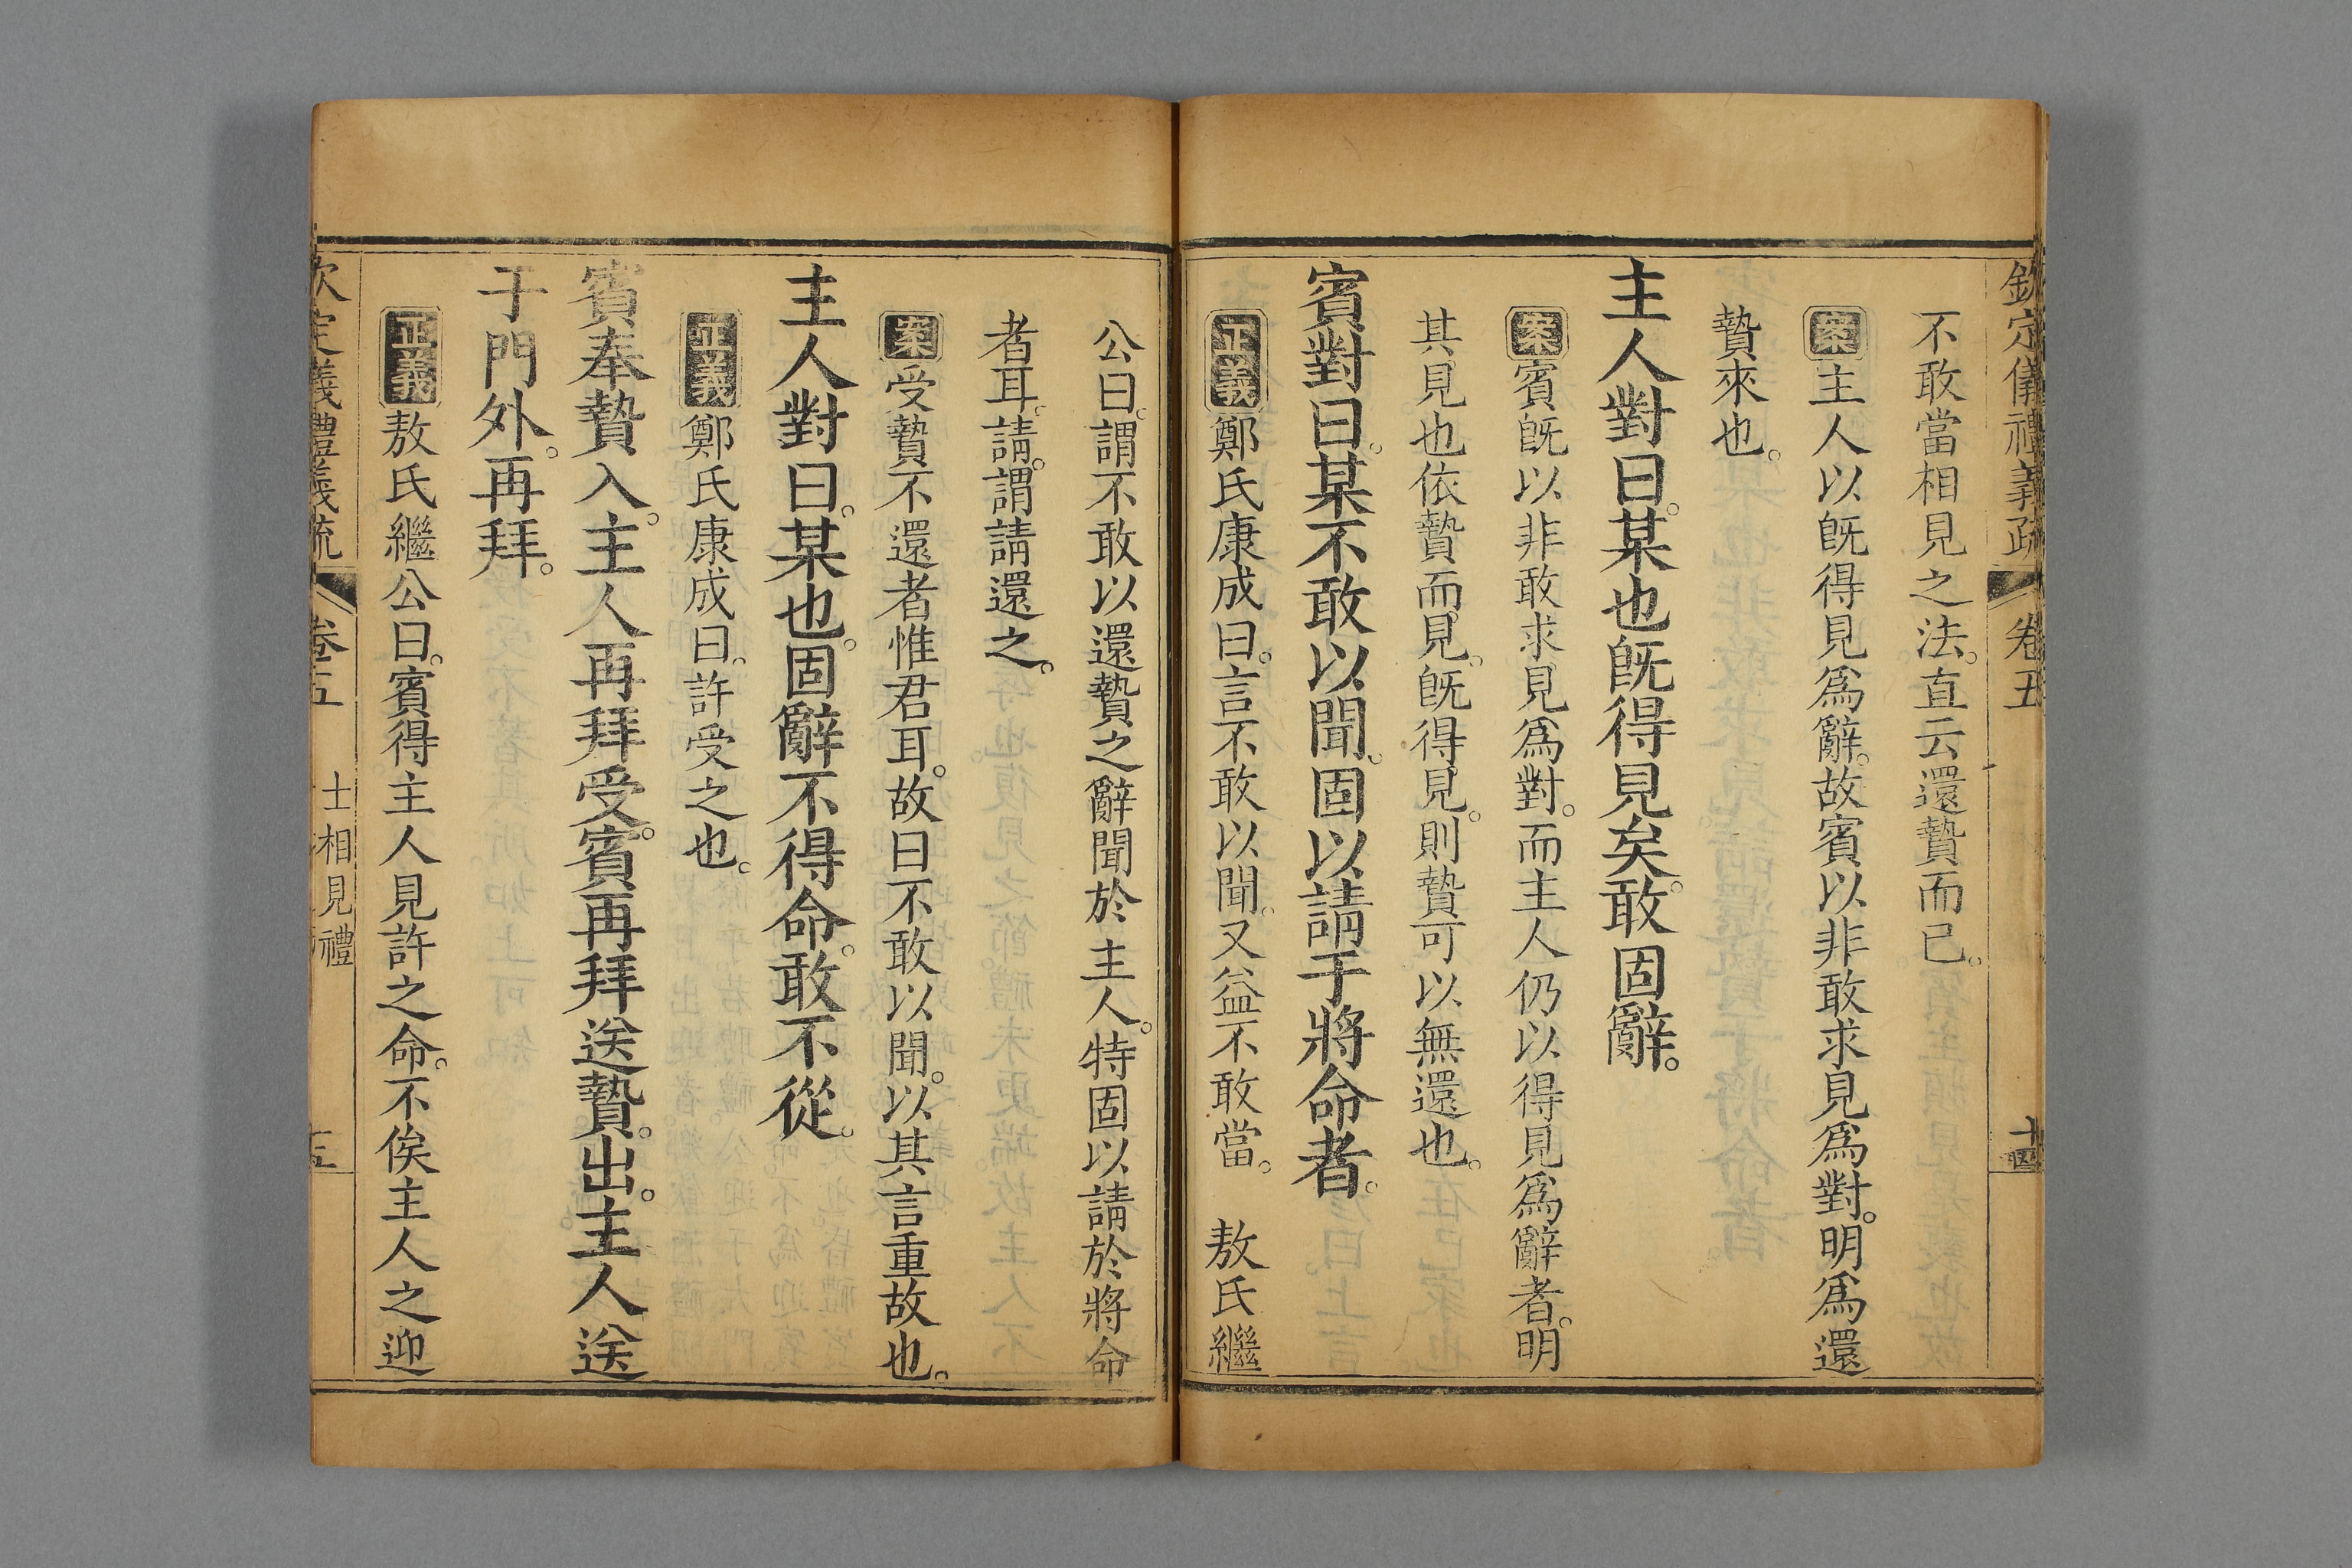 欽定儀禮義疏 卷五 十四
不敢當相見之法。直云還贄而已。
案主人以旣得見爲辭。故賓以非敢求見爲對。明爲還
贄來也。
主人對曰。某也旣得見矣。敢固辭。
案賓旣以非敢求見爲對。而主人仍以得見爲辭者。明
其見也依贄而見。旣得見。則贄可以無還也。
賓對曰。某不敢以聞。固以請于將命者。
正義鄭氏康成曰。言不敢以聞。又益不敢當。 敖氏繼
公曰。謂不敢以還贄之辭聞於主人。特固以請於將命
者耳。請。謂請還之。
案受贄不還者惟君耳。故曰不敢以聞。以其言重故也。
主人對曰。某也。固辭不得命。敢不從。
正義鄭氏康成曰。許受之也。
賓奉贄入。主人再拜受。賓再拜送贄。出。主人送
于門外。再拜。
正義敖氏繼公曰。賓得主人見許之命。不俟主人之迎
欽定儀禮義疏 卷五 士相見禮